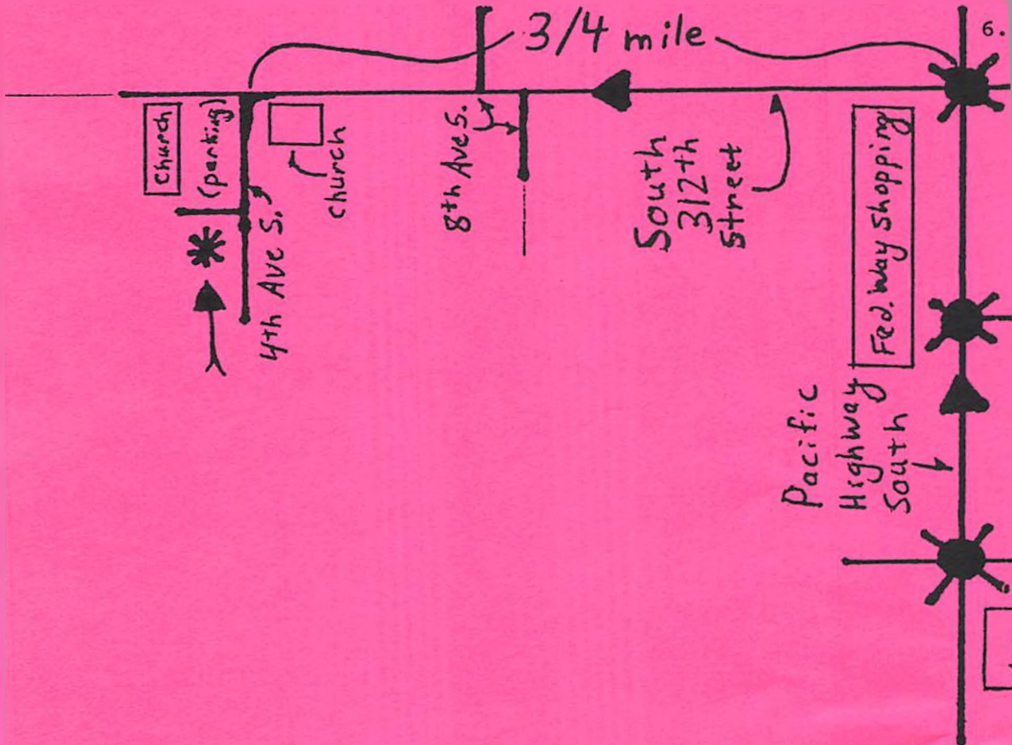 3/4 mile
6.
Church
(parking)
church
4th Ave S.
8th Ave S.
South
312th
Street
Fed. Way Shopping
Pacific
Highway
South